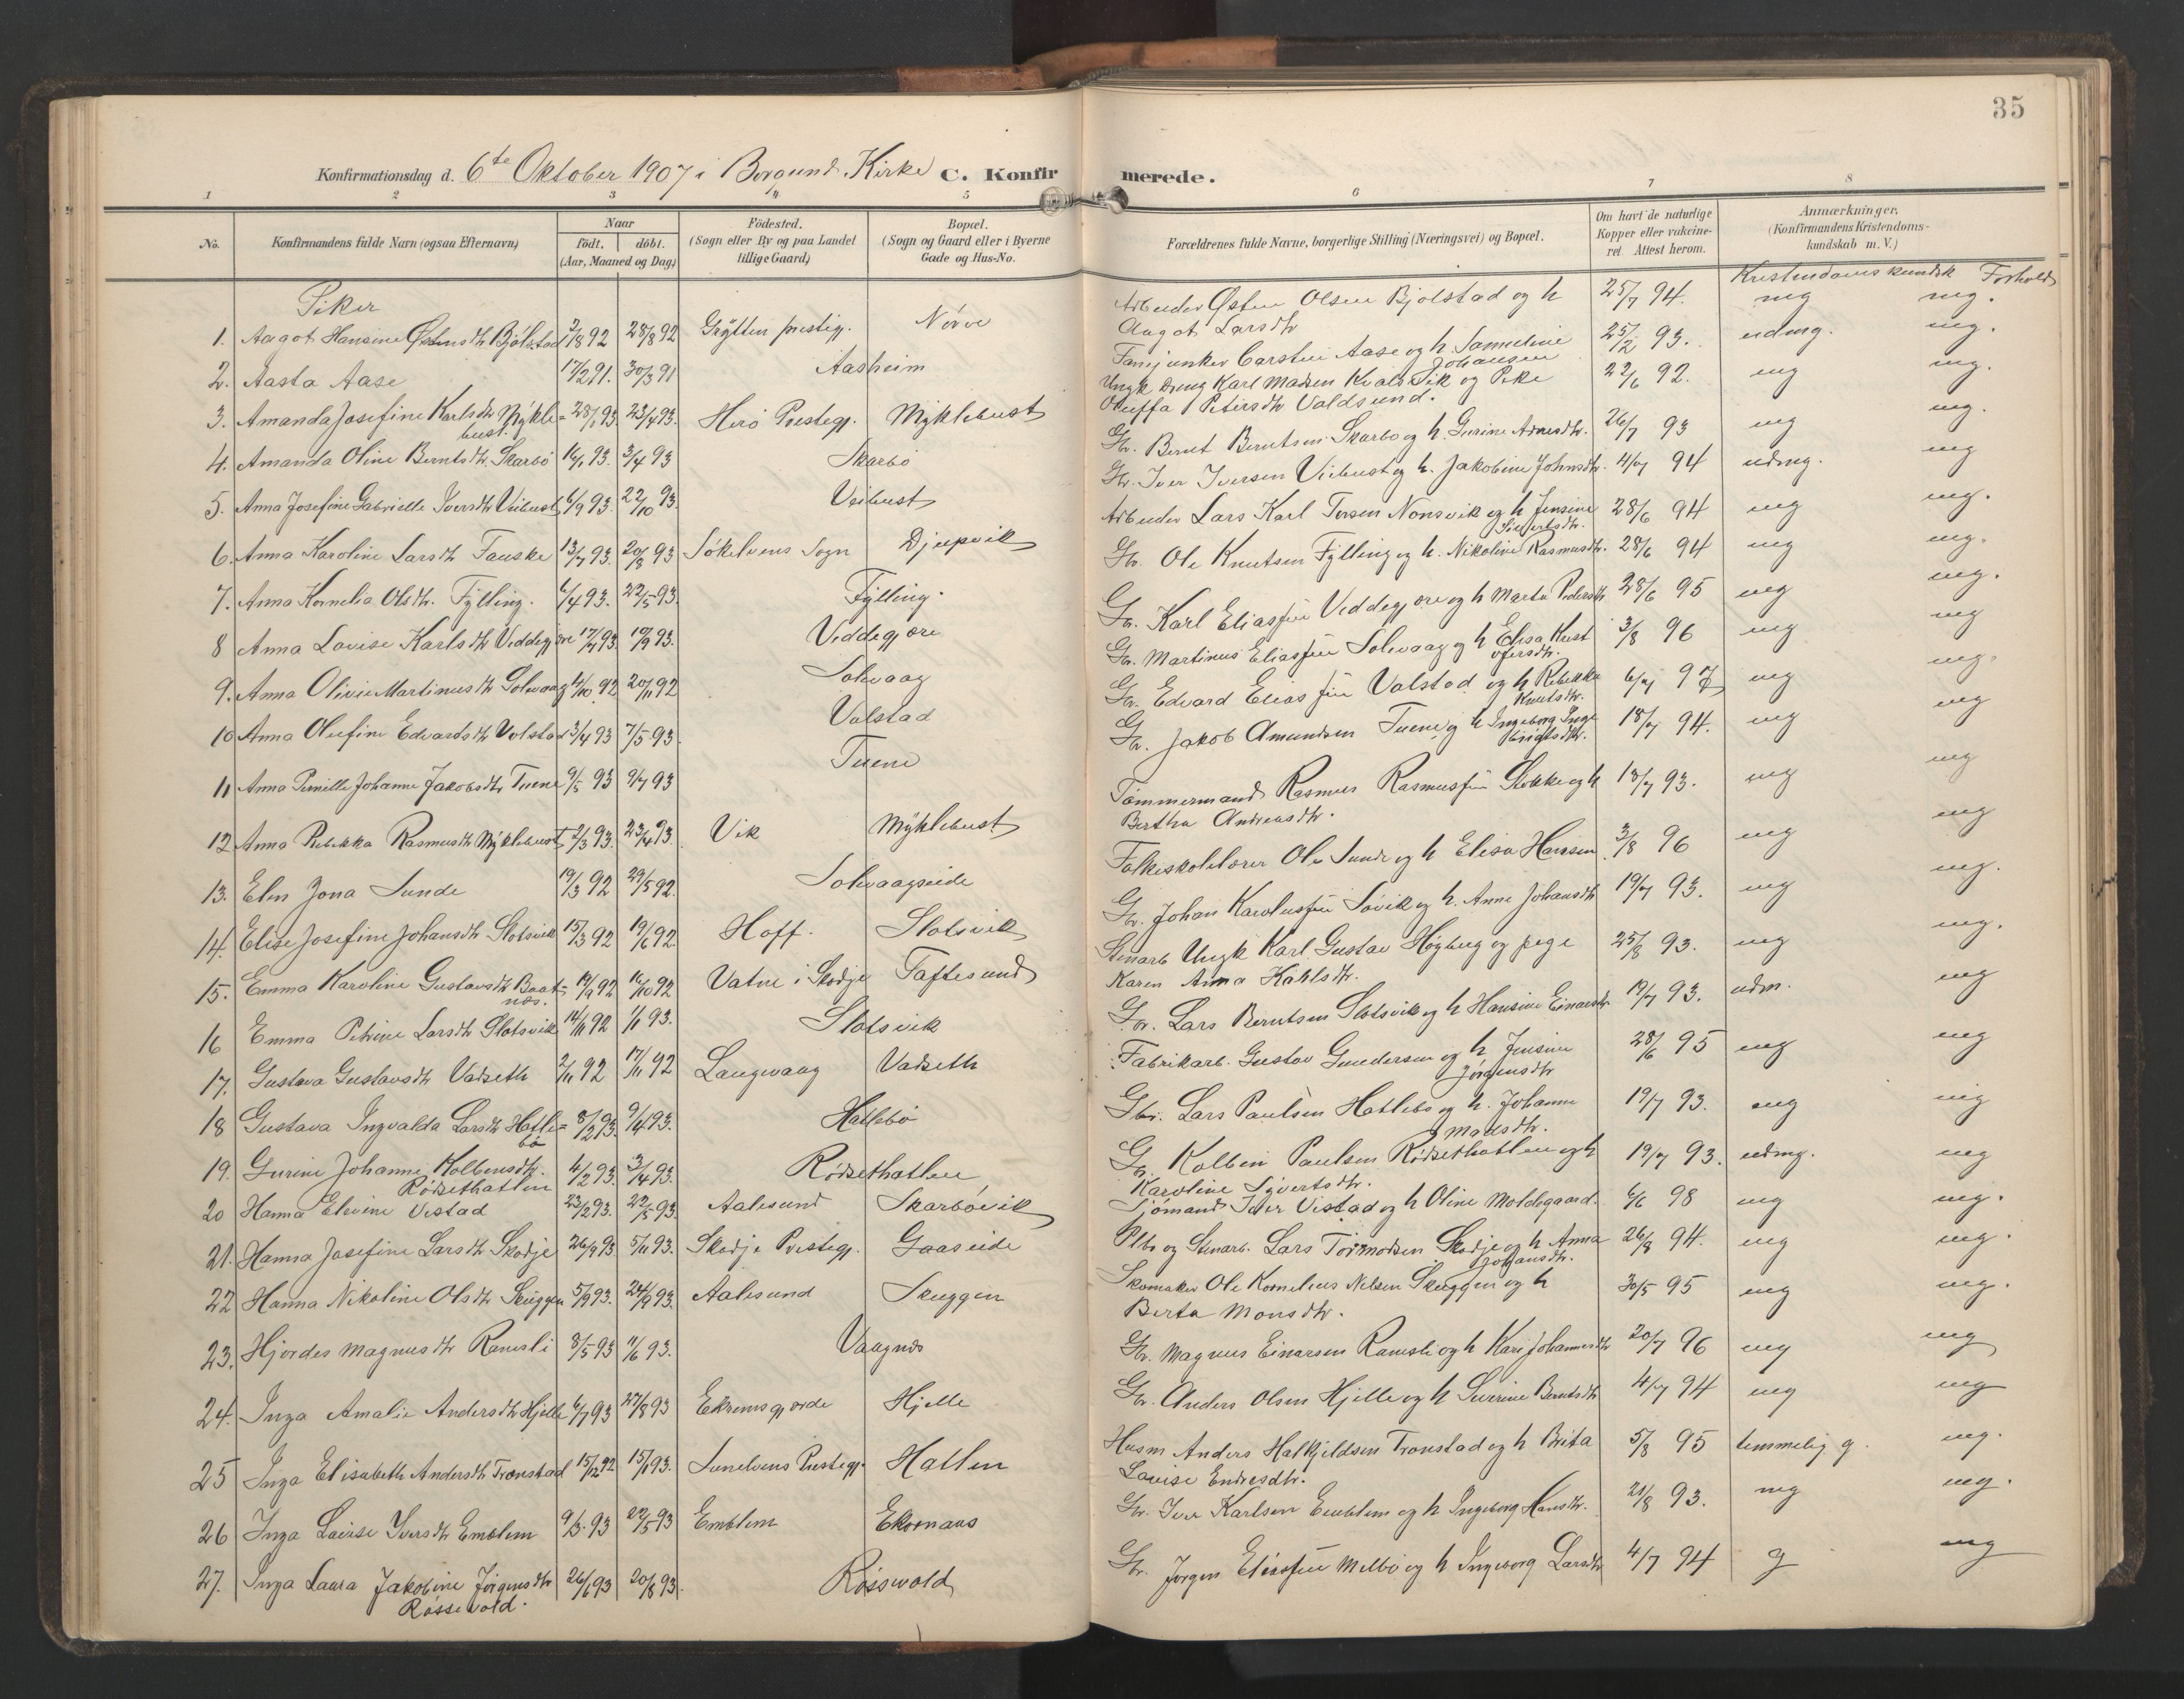 35
Konfirmationsdag d. 6te Oktober 1907 i Borgund Kirke C. Konfirmerede.
1 2 3 4 5 6 7 8
No. Konfirmandens fulde Navn (ogsaa Efternavn) Naar födt. döbt. (Aar, Maaned og Dag) Födested. (Sogn eller By og paa Landet tillige Gaard) Bopæl. (Sogn og Gaard eller i Byerne Gade og Hus-No. Forældrenes fulde Navne, borgerlige Stilling (Næringsvei) og Bopæl. Om havt de naturlige Kopper eller vakcineret. Attest herom. Anmærkninger. (Konfirmandens Kristendomskundskab m. V.)
Piker Kristendomskundsk Forhold
1. Aagot Hansine Østensdtr Bjølstad 7/8 92 28/8 92 Grytten prestegj. Nörve Arbeider Østen Olsen Bjolstad og h Aagot Larsdtr 25/7 94. mg mg.
2. Aasta Aase 17/2 91. 30/3 91 Aasheim Fanejunker Carsten Aase og h. Samueline Johansen 25/2 93. udmg. mg.
3. Amanda Josefine Karlsdtr Myklebust. 28/1 93. 23/4 93. Herö Prestegj. Myklebust Ungk Dreng Karl Madsen Kvalsvik og Pike Oluffa Petersdtr Voldsund. 22/6 92. mg mg.
4. Amanda Oline Berntsdtr. Skarbö 16/1 93. 3/4 93 Skarbö Gbr. Bernt Berntsen Skarbö og h. Gurine Arnesdtr. 26/7 93 mg mg.
5. Anna Josefine Gabrielle Iversdtr Veibust 6/9 93. 22/10 93. Veibust Gbr. Iver Iversen Veibust og h. Jakobine Johnsdtr. 4/7 94 udmg. mg
6. Anna Karoline Larsdtr Fauske 13/7 93. 20/8 93 Sökelvens Sogn Djupvik Arbeider Lars Karl Tersen Nonsvik og h Jensine Sivertsdtr. 28/6 94 mg mg.
7. Anna Kornelia Olsdtr. Fylling. 6/4 93. 22/5 93. Fylling. Gbr. Ole Knutsen Fylling og h. Nikoline Rasmusdtr. 28/6 94 mg mg.
8 Anna Lovise Karlsdtr Veddegjöre 17/7 93. 10/9 93. Veddegjöre Gbr. Karl Eliassen Veddegjöre og h Marta Pedersdtr 28/6 95 mg mg.
9. Anna Olivie Martinusdtr Solevaag 4/10 92 20/11 92 Solevaag Gbr. Martinus Eliassen Solevaag og h Elisa Kristofersdtr. 3/8 96 mg mg
10 Anna Olufine Edvardsdtr Valstad 3/4 93 7/5 93. Valstad Gbr. Edvard Eliassen Valstad og h Rebekka Knutsdtr. 6/7 97 mg mg.
11 Anna Pernille Johanne Jakobsdtr. Tuene 9/5 93 9/7 93 Tuene Gbr. Jakob Amundsen Tuene og h Ingeborg Ingebrigtsdtr. 18/7 94. mg mg
12 Anna Rebekka Rasmusdtr Myklebust 2/3 93. 23/4 93. Vik Myklebust Tömmermand Rasmus Rasmussen Stokke og h Bertha Andreasdtr. 18/7 93. mg mg
13. Elen Jona Sunde 19/3 92 29/5 92. Solevaagseide Folkeskolelærer Ole Sunde og h Elisa Hanssen 3/8 96 mg mg
14. Elise Josefine Johansdtr Slotsvik 15/3 92 19/6 92. Hoff. Slotsvik Gbr. Johan Karolussen Sövik og h. Anne Johansdtr 19/7 93. mg mg.
15. Emma Karoline Gustavsdtr Baatnes. 19/9 92 16/10 92 Vatne i Skodje Taftesund Stenarb Ungk Karl Gustav Högberg og pige Karen Anna Karlsdtr. 25/8 93. mg mg.
16 Emma Petrine Larsdtr Slotsvik 14/11 92 1/1 93. Slotsvik Gbr. Lars Berntsen Slotsvik og h Hansine Einarsdtr 19/7 93. udm. mg
17. Gustava Gustavsdtr Vadseth 2/11 92 17/11 92 Langevaag Vadseth Fabrikarb. Gustav Gundersen og h Jensine Jörgensdtr 28/6 95 mg mg
18 Gustava Ingvalda Larsdtr Hatlebö 8/2 93. 9/4 93. Hatlebö Gbr. Lars Paulsen Hatlebö og h. Johanne Madsdtr. 19/7 93. mg mg
19. Gurine Johanne Kolbensdtr. Rödsethatlen 4/2 93. 3/4 93. Rödsethatlen Gbr. Kolben Paulsen Rödsethatlen og h Karoline Syvertsdtr. 19/7 93. udmg. mg
20 Hanna Elevine Vestad 23/2 93. 22/5 93. Aalesund Skarbövik Sjömand Iver Vestad og h Oline Moldegaard. 6/6 98 mg mg.
21. Hanna Josefine Larsdtr Skodje 26/9 93 5/11 93. Skodje Prestegj. Gaaseide Plbr og Stenarb. Lars Tormodsen Skodje og h Anna Johansdtr. 26/8 94. mg mg.
22 Hanna Nikoline Olsdtr Skuggen 5/9 93. 24/9 93. Aalesund Skuggen Skomaker Ole Kornelius Nelsen Skuggen og h Berta Monsdtr. 30/5 95 mg mg.
23. Hjördes Magnusdtr Ramsli 8/5 93 11/6 93. Vaagnes Gbr. Magnus Einarsen Ramsli og h Kari Johannesdtr 20/7 96 mg mg
24. Inga Amalie Andersdtr Hjelle 6/7 93 27/8 93 Ekremsgjærde Hjelle Gbr. Anders Olsen Hjelle og h Severine Berntsdtr 4/7 94 mg mg
25 Inga Elisabeth Andersdtr Tronstad 15/12 92 15/1 93. Sunelvens Prestegj. Hatlen Husm Anders Hatkjeldsen Tronstad og h Brita Lovise Endresdtr. 5/8 95 temmelig g. mg.
26 Inga Lovise Iversdtr Emblem 9/3 93 22/5 93 Emblem Ekornaas Gbr. Iver Karlsen Emblem og h Ingeborg Hansdtr. 21/8 93. mg mg.
27. Inga Laura Jakobine Jörgensdtr Rössevold. 26/6 93 20/8 93. Rössevold Gbr. Jörgen Eliassen Melbö og h Ingeborg Larsdtr 4/7 94 g mg